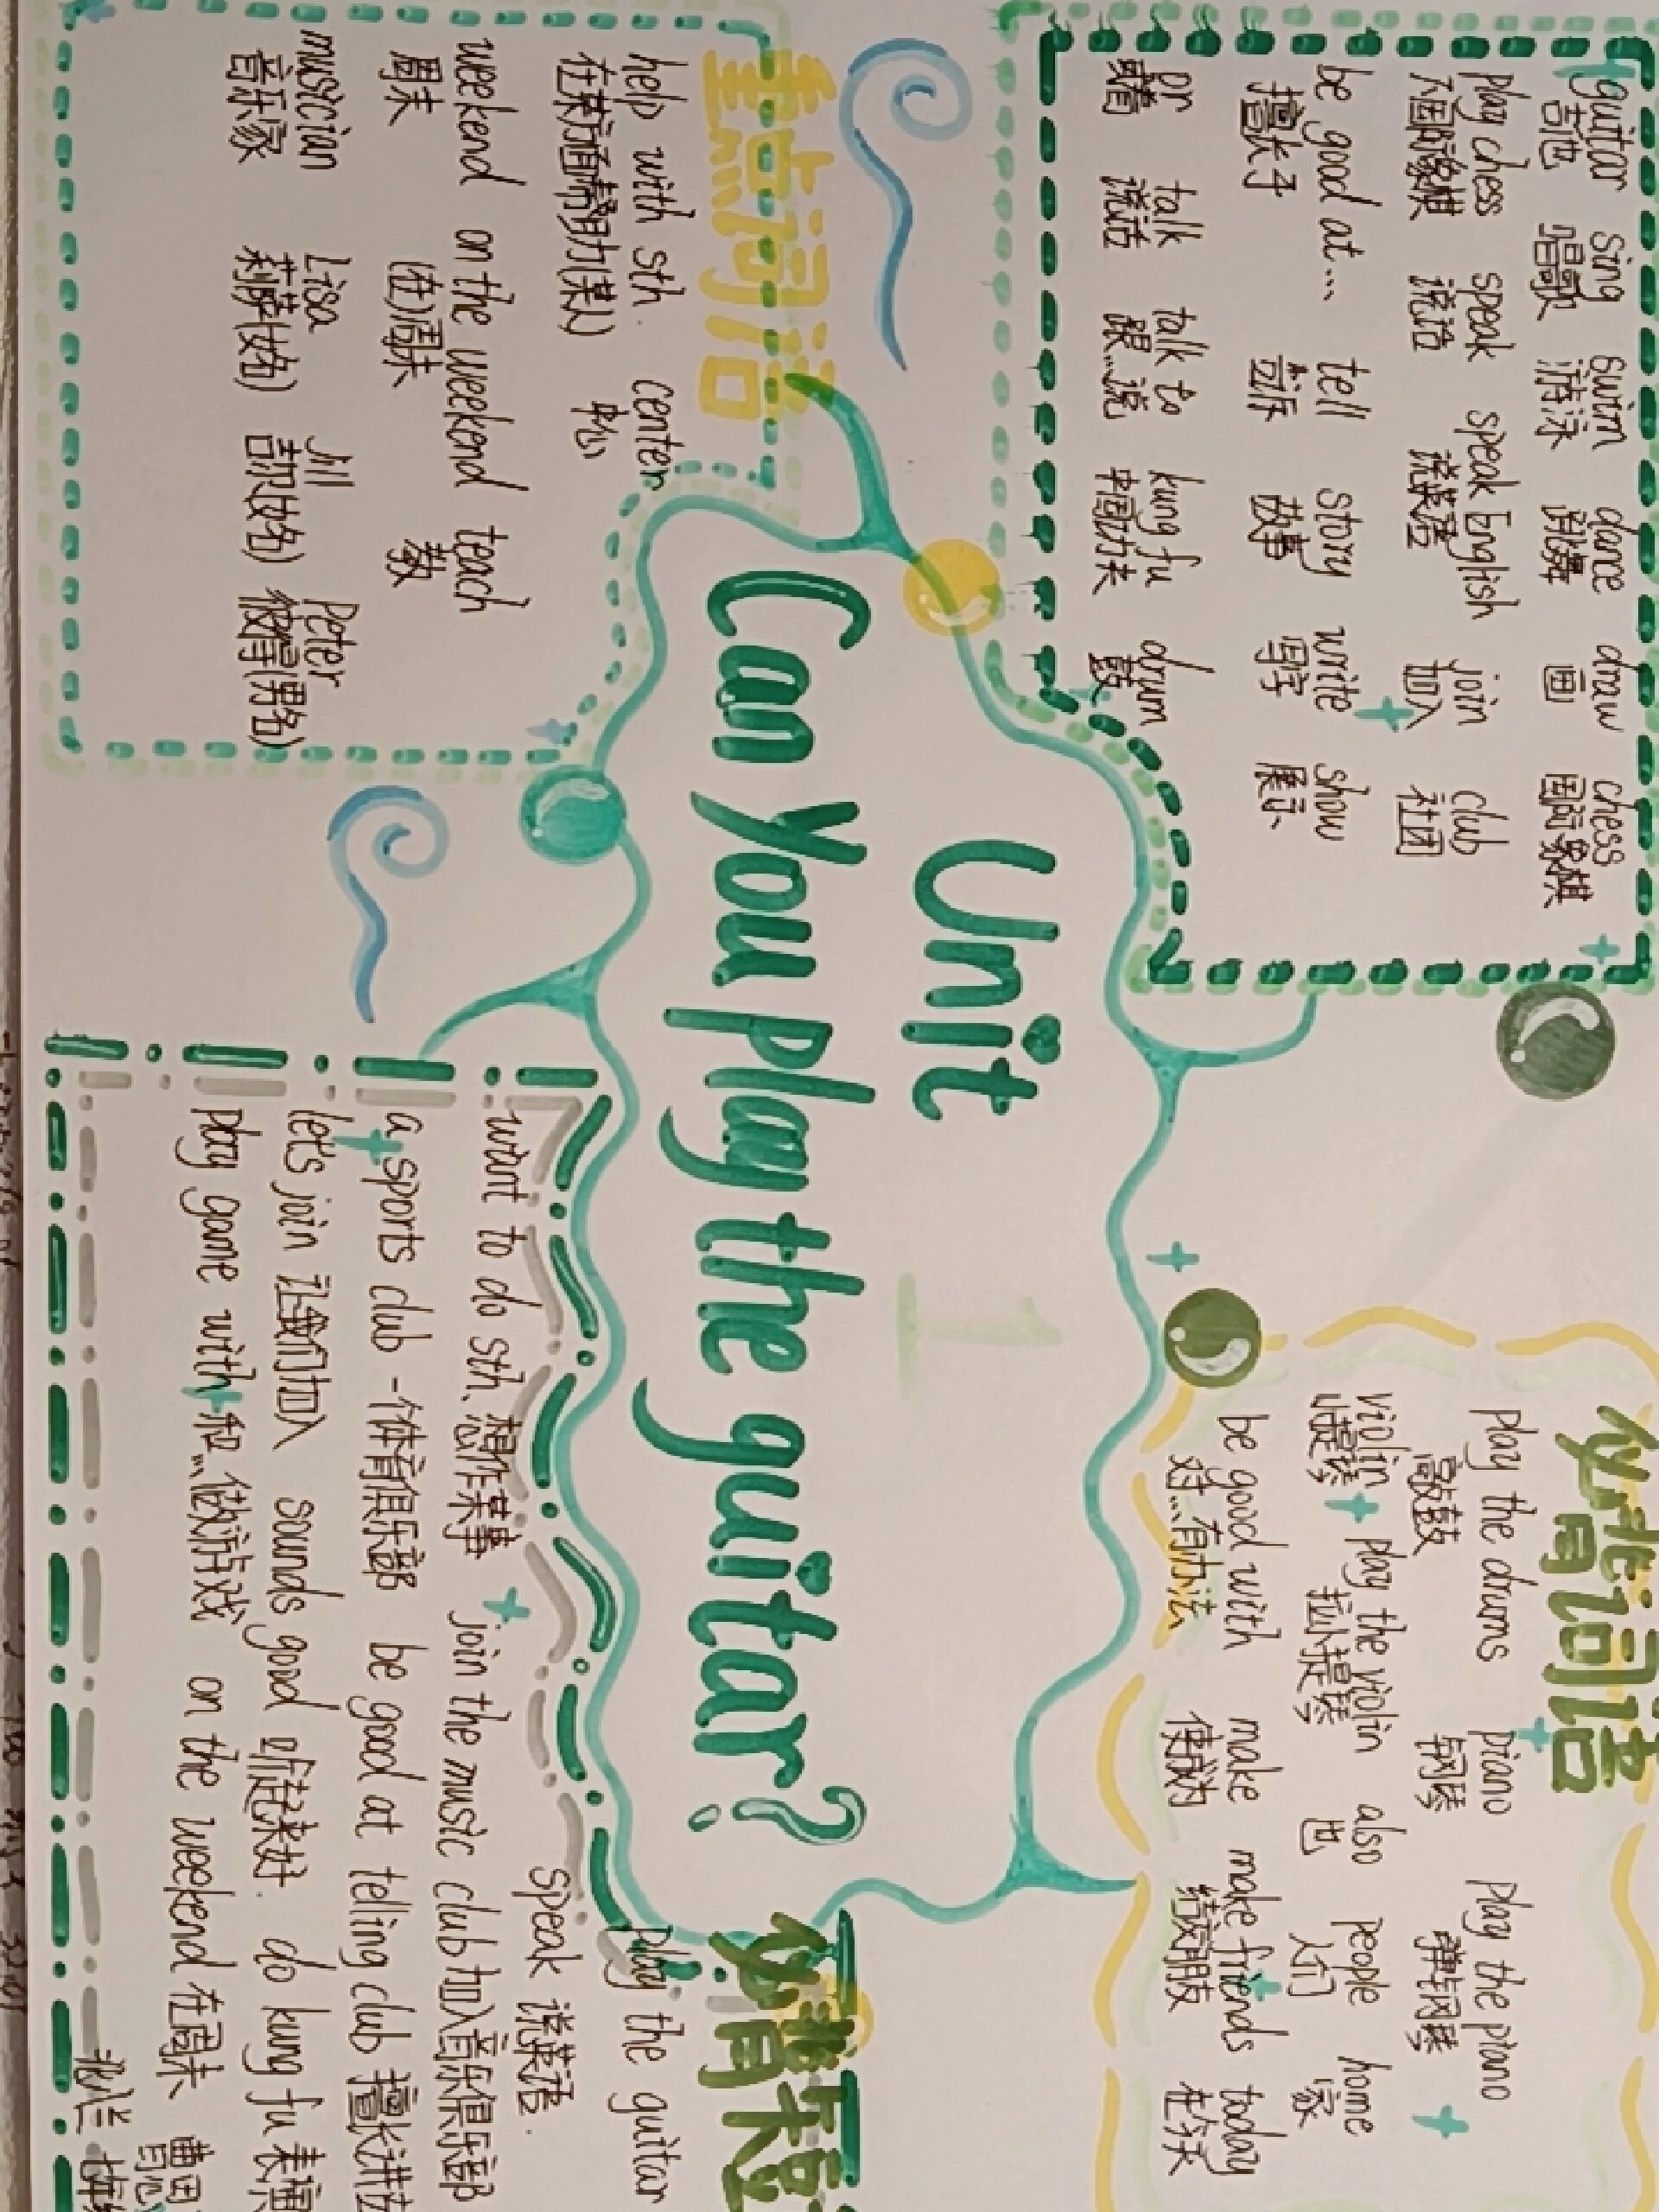 guitar sing swim dance draw chess
吉他 唱歌 游泳 跳舞 画 国际象棋
play chess speak speak English join club
下国际象棋 说话 说英语 加入 社团
be good at... tell story write show
擅长于 告诉 故事 写字 展示
or talk talk to kung fu drum
或者 说话 跟...说 中国功夫 鼓
重点词语
help with sth. center
在某方面帮助(某人) 中心
weekend on the weekend teach
周末 (在)周末 教
musician Lisa Jill Peter
音乐家 莉萨(女名) 吉尔(女名) 彼得(男名)
Unit 1
Can You play the guitar?
词语
play the drums piano play the piano
敲鼓 钢琴 弹钢琴
violin play the violin also people home
小提琴 拉小提琴 也 人们 家
be good with make make friends today
对...有办法 使成为 结交朋友 在今天
play the guitar
speak 说英语.
want to do sth. 想作某事 join the music club 加入音乐俱乐部
a sports club 一个体育俱乐部 be good at telling club 擅长讲
let's join 让我们加入 sounds good 听起来好. do kung fu 表演
play game with 和...做游戏 on the weekend 在周末